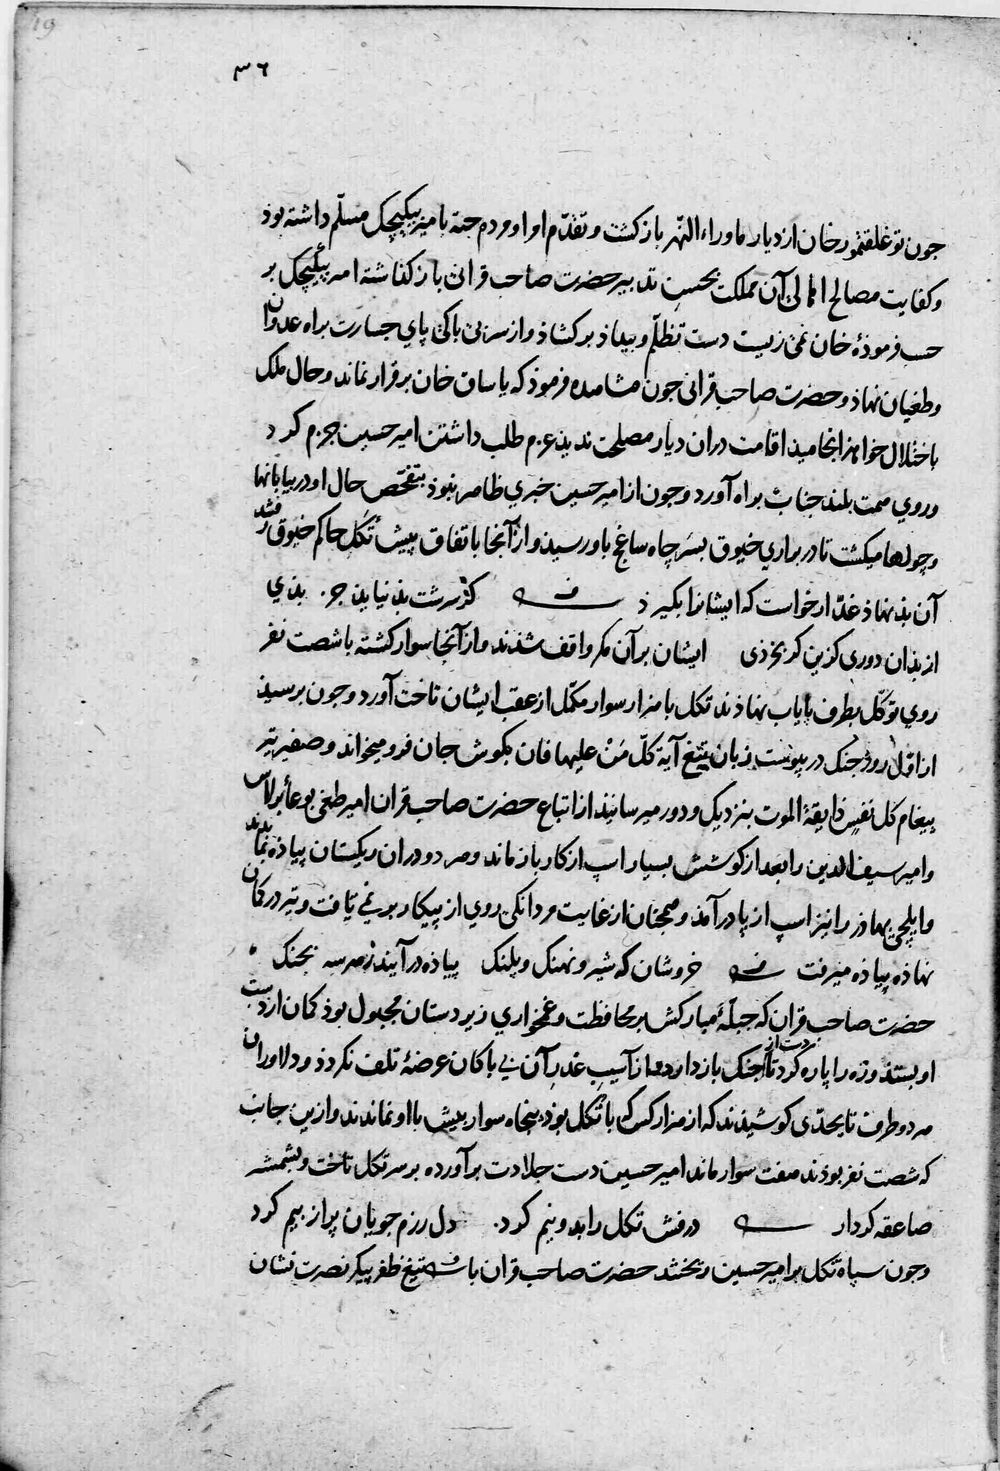 19
٣٦
جون توغلقتمور خان از دیار ماوراء النّهر بازکشت و تقدّم او اوردم جته بامیر بیکیچک مسلّم داشته بوذ
و کفایت مصالح اهالی آن مملکت بحسن تدبیر حضرت صاحب قرانی باز کذاشته امیر بیکیچک بر
حسب فرموذهٔ خان نمی زیست دست تظلّم و بیداذ برکشاذ و از سر بی باکی پای جسارت براه عدوان
و طغیان نهاذ و حضرت صاحب قرانی جون مشاهده فرموذ که یاساق خان برقرار نماند و حال ملک
باختلال خواهذ انجامیذ اقامت دران دیار مصلحت ندیذ عزم طلب داشتن امیر حسین جزم کرد
و روی همت بلند جناب براه آورد و جون از امیر حسین خبری ظاهر نبوذ بتفحّص حال او در بیابانها
و چولها میکشت تا در براری خیوق بسر چاه ساغج باو رسیذ و از آنجا باتفاق پیش تکل حاکم خیوق رفتند
آن بذ نهاذ غدّار خواست که ایشانرا بکیرذ کز سرشت بذ نیایذ جز بذی
از بذان دوری کزین کر بخردی ایشان بر آن مکر واقف شذند و از آنجا سوار کشته با شصت نفر
روی توکّل بطرف پایاب نهاذند تکل با هزار سوار مکمّل از عقب ایشان تاخت آورد و جون برسیذ
از اوّل روز جنک در پیوست زبان تیغ آیهٔ کلّ مَنْ علیها فان بکوش جان فرو میخواند و صفیر تیر
پیغام کل نفس ذایقة الموت بنزدیک و دور میرسانیذ از اتباع حضرت صاحب قران امیر طغی بوغا برلاس
و امیر سیف الدین را بعد از کوشش بسیار اسپ از کار بازماند و هر دو دران ریکستان پیاذه بماندند
و ایلچی بهاذر را نیز اسپ از پا درآمذ و همچنان از غایت مردانکی روی از پیکار بر نمی تافت و تیر در کمان
نهاذه پیاذه میرفت خروشان که شیر و نهنک و پلنک پیاذه درآیند هر سه بجنک
حضرت صاحب قران که جبلّهٔ مبارکش بر محافظت و غمخواری زیر دستان مجبول بوذ کمان از دست
او بستذ و زه را پاره کرد تا دست از جنک بازدارد و از آسیب غدر آن بی باکان عرضهٔ تلف نکردذ و دلاوران
هر دو طرف تا بحدّی کوشیذند که از هزار کس که با تکل بوذ پنجاه سوار بیش با او نماندند و ازین جانب
که شصت نفر بوذند هفت سوار ماند امیر حسین دست جلادت برآورده بر سر تکل تاخت و بشمشیر
صاعقه کردار درفش تکل را بدو نیم کرد دل رزم جویان پر از بیم کرد
و جون سپاه تکل بر امیر حسین ریختند حضرت صاحب قران با تیغ ظفر پیکر نصرت نشان